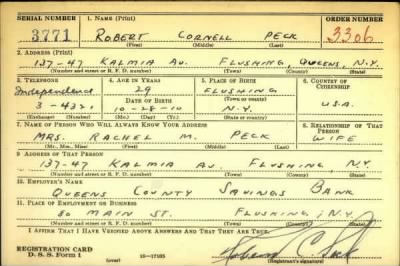 SERIAL NUMBER 1. NAME (Print) ORDER NUMBER
3771 ROBERT CORNELL PECK 3306
(First) (Middle) (Last)
2. ADDRESS (Print)
137-47 KALMIA AV. FLUSHING, QUEENS, N.Y.
(Number and street or R. F. D. number) (Town) (County) (State)
3. TELEPHONE 4. AGE IN YEARS 5. PLACE OF BIRTH 6. COUNTRY OF CITIZENSHIP
Independence 29 FLUSHING
DATE OF BIRTH (Town or county)
3-4321 10-28-10 N.Y. U.S.A.
(Exchange) (Number) (Mo.) (Day) (Yr.) (State or country)
7. NAME OF PERSON WHO WILL ALWAYS KNOW YOUR ADDRESS 8. RELATIONSHIP OF THAT PERSON
MRS. RACHEL M. PECK WIFE
(Mr., Mrs., Miss) (First) (Middle) (Last)
9. ADDRESS OF THAT PERSON
137-47 KALMIA AV. FLUSHING N.Y.
(Number and street or R. F. D. number) (Town) (County) (State)
10. EMPLOYER'S NAME
QUEENS COUNTY SAVINGS BANK
11. PLACE OF EMPLOYMENT OR BUSINESS
80 MAIN ST. FLUSHING, N.Y.
(Number and street or R. F. D. number) (Town) (County) (State)
I AFFIRM THAT I HAVE VERIFIED ABOVE ANSWERS AND THAT THEY ARE TRUE.
REGISTRATION CARD
D. S. S. Form 1 (over) 16-17105 Robert C. Peck